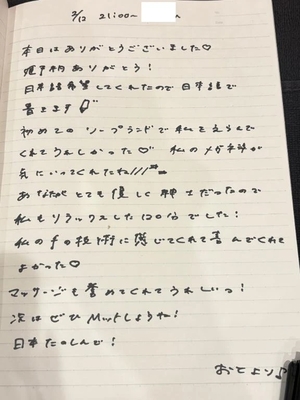 2/12 21:00〜
本日はありがとうございました♡
ありがとう!
日本語希望してくれたので日本語で
書きます
初めてのソープランドで私をえらんで
くれてうれしかった♡ 私のメガネ姿が
気にいってくれたね///
あなたがとても優しく紳士だったので
私もリラックスした120分でした!
私の手の技術に感じてくれて喜んでくれて
よかった♡
マッサージも誉めてくれてうれしいっ!
次はぜひMattしようね!
日本たのしんで!
おとより♪